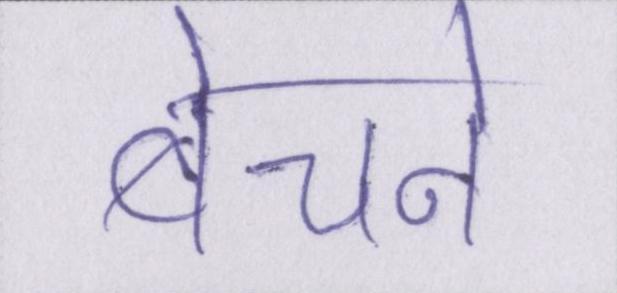 बेचने